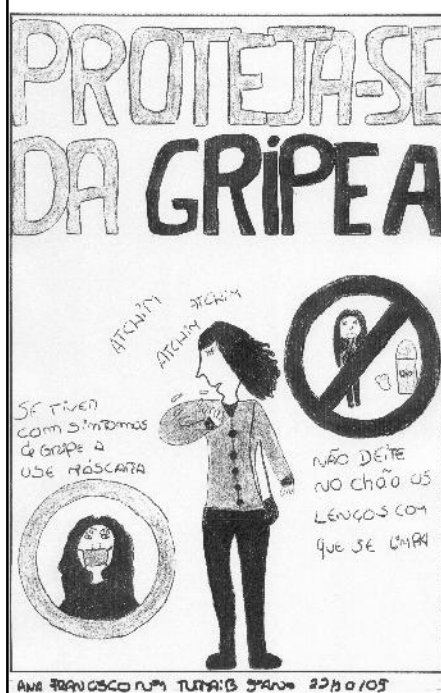 PROTEJA-SE
DA GRIPE A
ATCHIM
ATCHIM
ATCHIM
SE TIVER
COM SINTOMAS
DE GRIPE A
USE MÁSCARA
NÃO DEITE
NO CHÃO OS
LENÇOS COM
QUE SE LIMPA
ANA FRANCISCO Nº1 TURMA:B 9ºANO